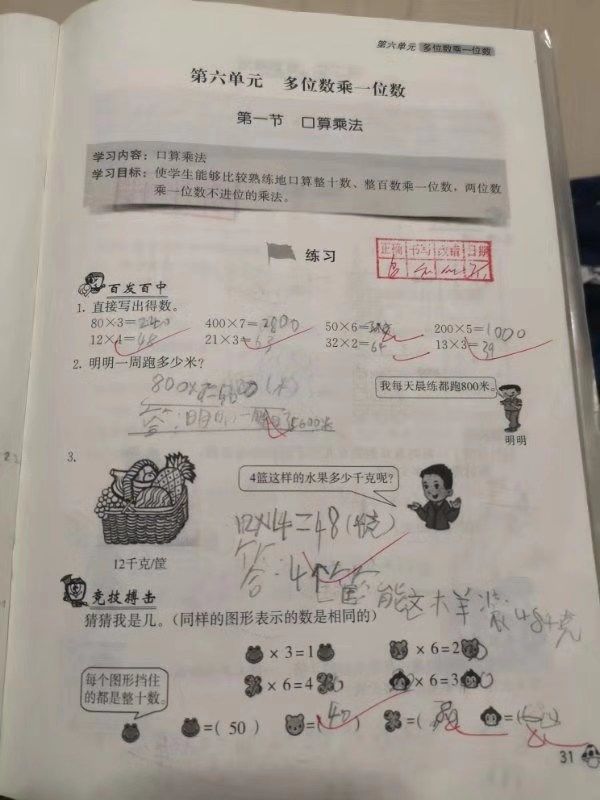 第六单元 多位数乘一位数
第六单元 多位数乘一位数
第一节 口算乘法
学习内容：口算乘法
学习目标：使学生能够比较熟练地口算整十数、整百数乘一位数，两位数
乘一位数不进位的乘法。
练习
正确 书写 改错 日期
百发百中
1. 直接写出得数。
80×3=240 400×7=2800 50×6= 200×5=1000
12×4=48 21×3=63 32×2=64 13×3=39
2. 明明一周跑多少米？
我每天晨练都跑800米。
800×7=5600(米)
答：明明一 5600米
明明
3.
4篮这样的水果多少千克呢？
12×4=48(千克)
12千克/筐
答：4 能这大羊装484克
竞技搏击
猜猜我是几。（同样的图形表示的数是相同的）
×3=1 ×6=2
每个图形挡住
的都是整十数。
×6=4 ×6=3
=( 50 ) =( 40 ) =( ) =( )
31